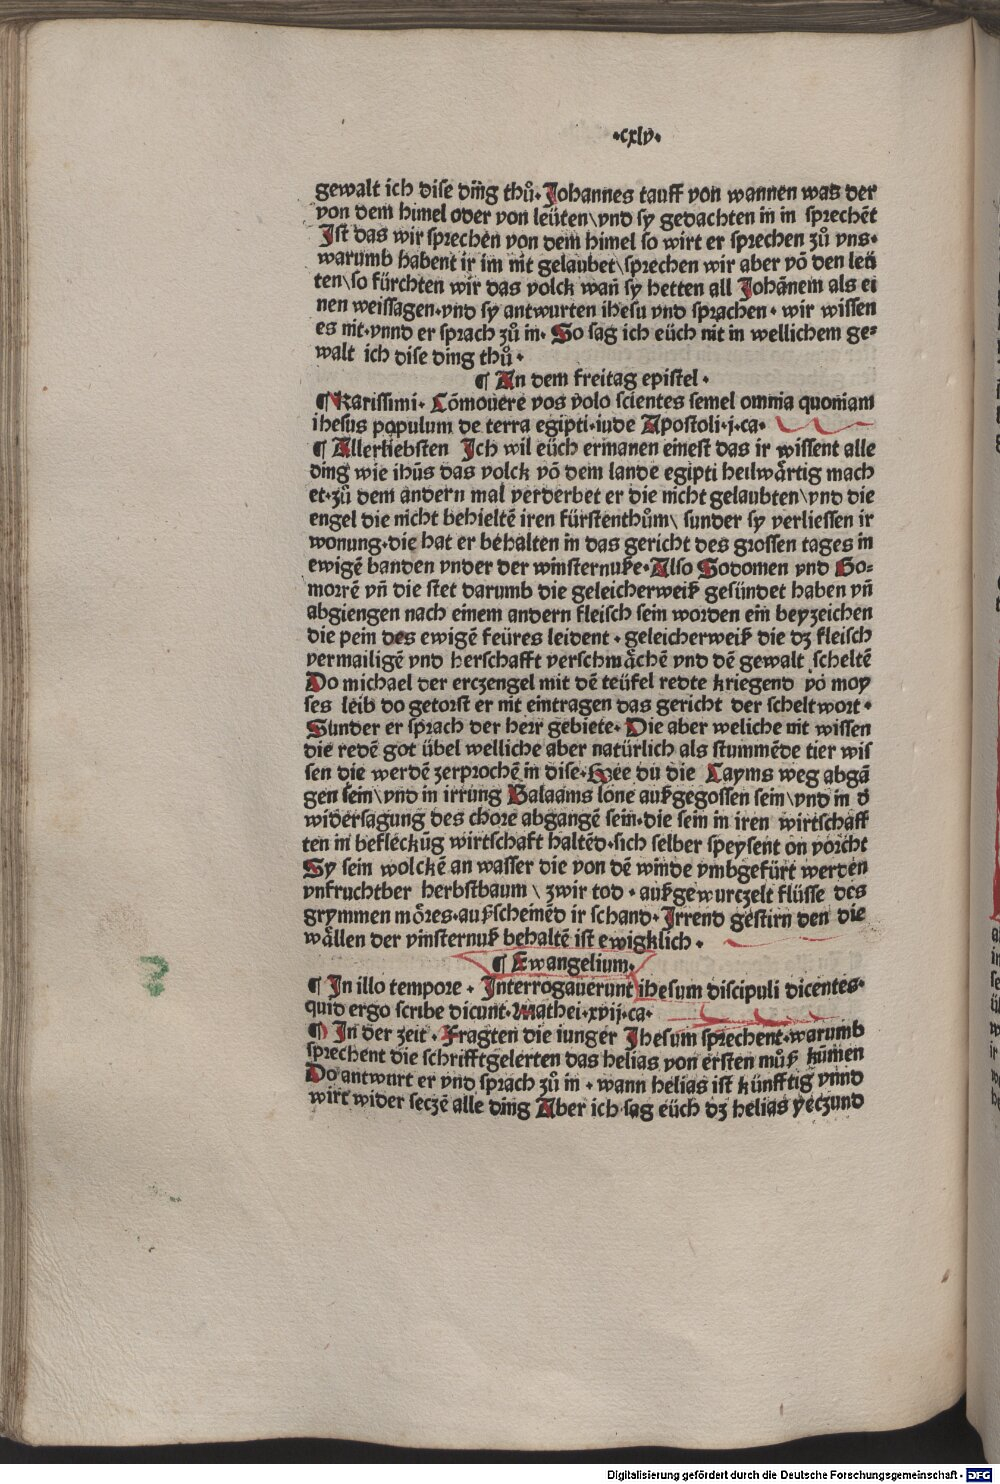 ·cxlv·
gewalt ich dise din̄g thů· Johannes tauff von wannen was der
von dem himel oder von leüten\vnd sy gedachten in in sprechēt
Jst das wir sprechen von dem himel so wirt er sprechen zů vns·
warumb habent ir im nit gelaubet\sprechen wir aber vō den leü
ten\so fürchten wir das volck wan̄ sy hetten all Johānem als ei
nen weissagen·vnd sy antwurten ihesu vnd sprachen· wir wissen
es nit·vnnd er sprach zů in· So sag ich eüch nit in wellichem ge⸗
walt ich dise ding thů·
¶ An dem freitag epistel·
¶ Karissimi· Cōmouere vos volo scientes semel omnia quoniam
ihesus populum de terra egipti·iude Apostoli·j·ca·
¶ Allerliebsten Jch wil eüch ermanen einest das ir wissent alle
ding wie ihūs das volck vō dem lande egipti heilwårtig mach
et·zů dem andern mal verderbet er die nicht gelaubten\vnd die
engel die nicht behieltē iren fürstenthům\ sunder sy verliessen ir
wonung·die hat er behalten in das gericht des grossen tages in
ewigē banden vnder der winsternuße·Also Sodomen vnd Go⸗
morrē vn̄ die stet darumb die geleicherweiß gesündet haben vn̄
abgiengen nach einem andern fleisch sein worden ein beyzeichen
die pein des ewigē feüres leident · geleicherweiß die dz fleisch
vermailigē vnd herschafft verschmåchē vnd dē gewalt scheltē
Do michael der erczengel mit dē teüfel redte kriegend vō moy
ses leib do getorst er nit eintragen das gericht der schelt wort·
Sunder er sprach der herr gebiete· Die aber weliche nit wissen
die redē got übel welliche aber natürlich als stummēde tier wis
sen die werdē zerprochē in dise·Wee du die Cayms weg abgā
gen sein\vnd in irrung Balaams lone außgegossen sein\vnd in d̄
widersagung des chore abgangē sein·die sein in iren wirtschaff
ten in befleckūg wirtschaft haltēd·sich selber speysent on vorcht
Sy sein wolckē an wasser die von dē winde vmbgefürt werden
vnfruchtber herbstbaum \ zwir tod · außgewurczelt flüsse des
grymmen mo̊res·außscheinēd ir schand· Jrrend gestirn den die
wållen der vinsternuß behaltē ist ewigklich·
¶ Ewangelium·
¶ Jn illo tempore · Jnterrogauerunt ihesum discipuli dicentes·
quid ergo scribe dicunt·Mathei·xvij·ca·
¶ Jn der zeit · Fragten die iunger Jhesum sprechent·warumb
sprechent die schrifftgelerten das helias von ersten můß kūmen
Do antwurt er vnd sprach zů in · wann helias ist künfftig vnnd
wirt wider seczē alle ding Aber ich sag eüch dz helias yeczund
Digitalisierung gefördert durch die Deutsche Forschungsgemeinschaft - DFG